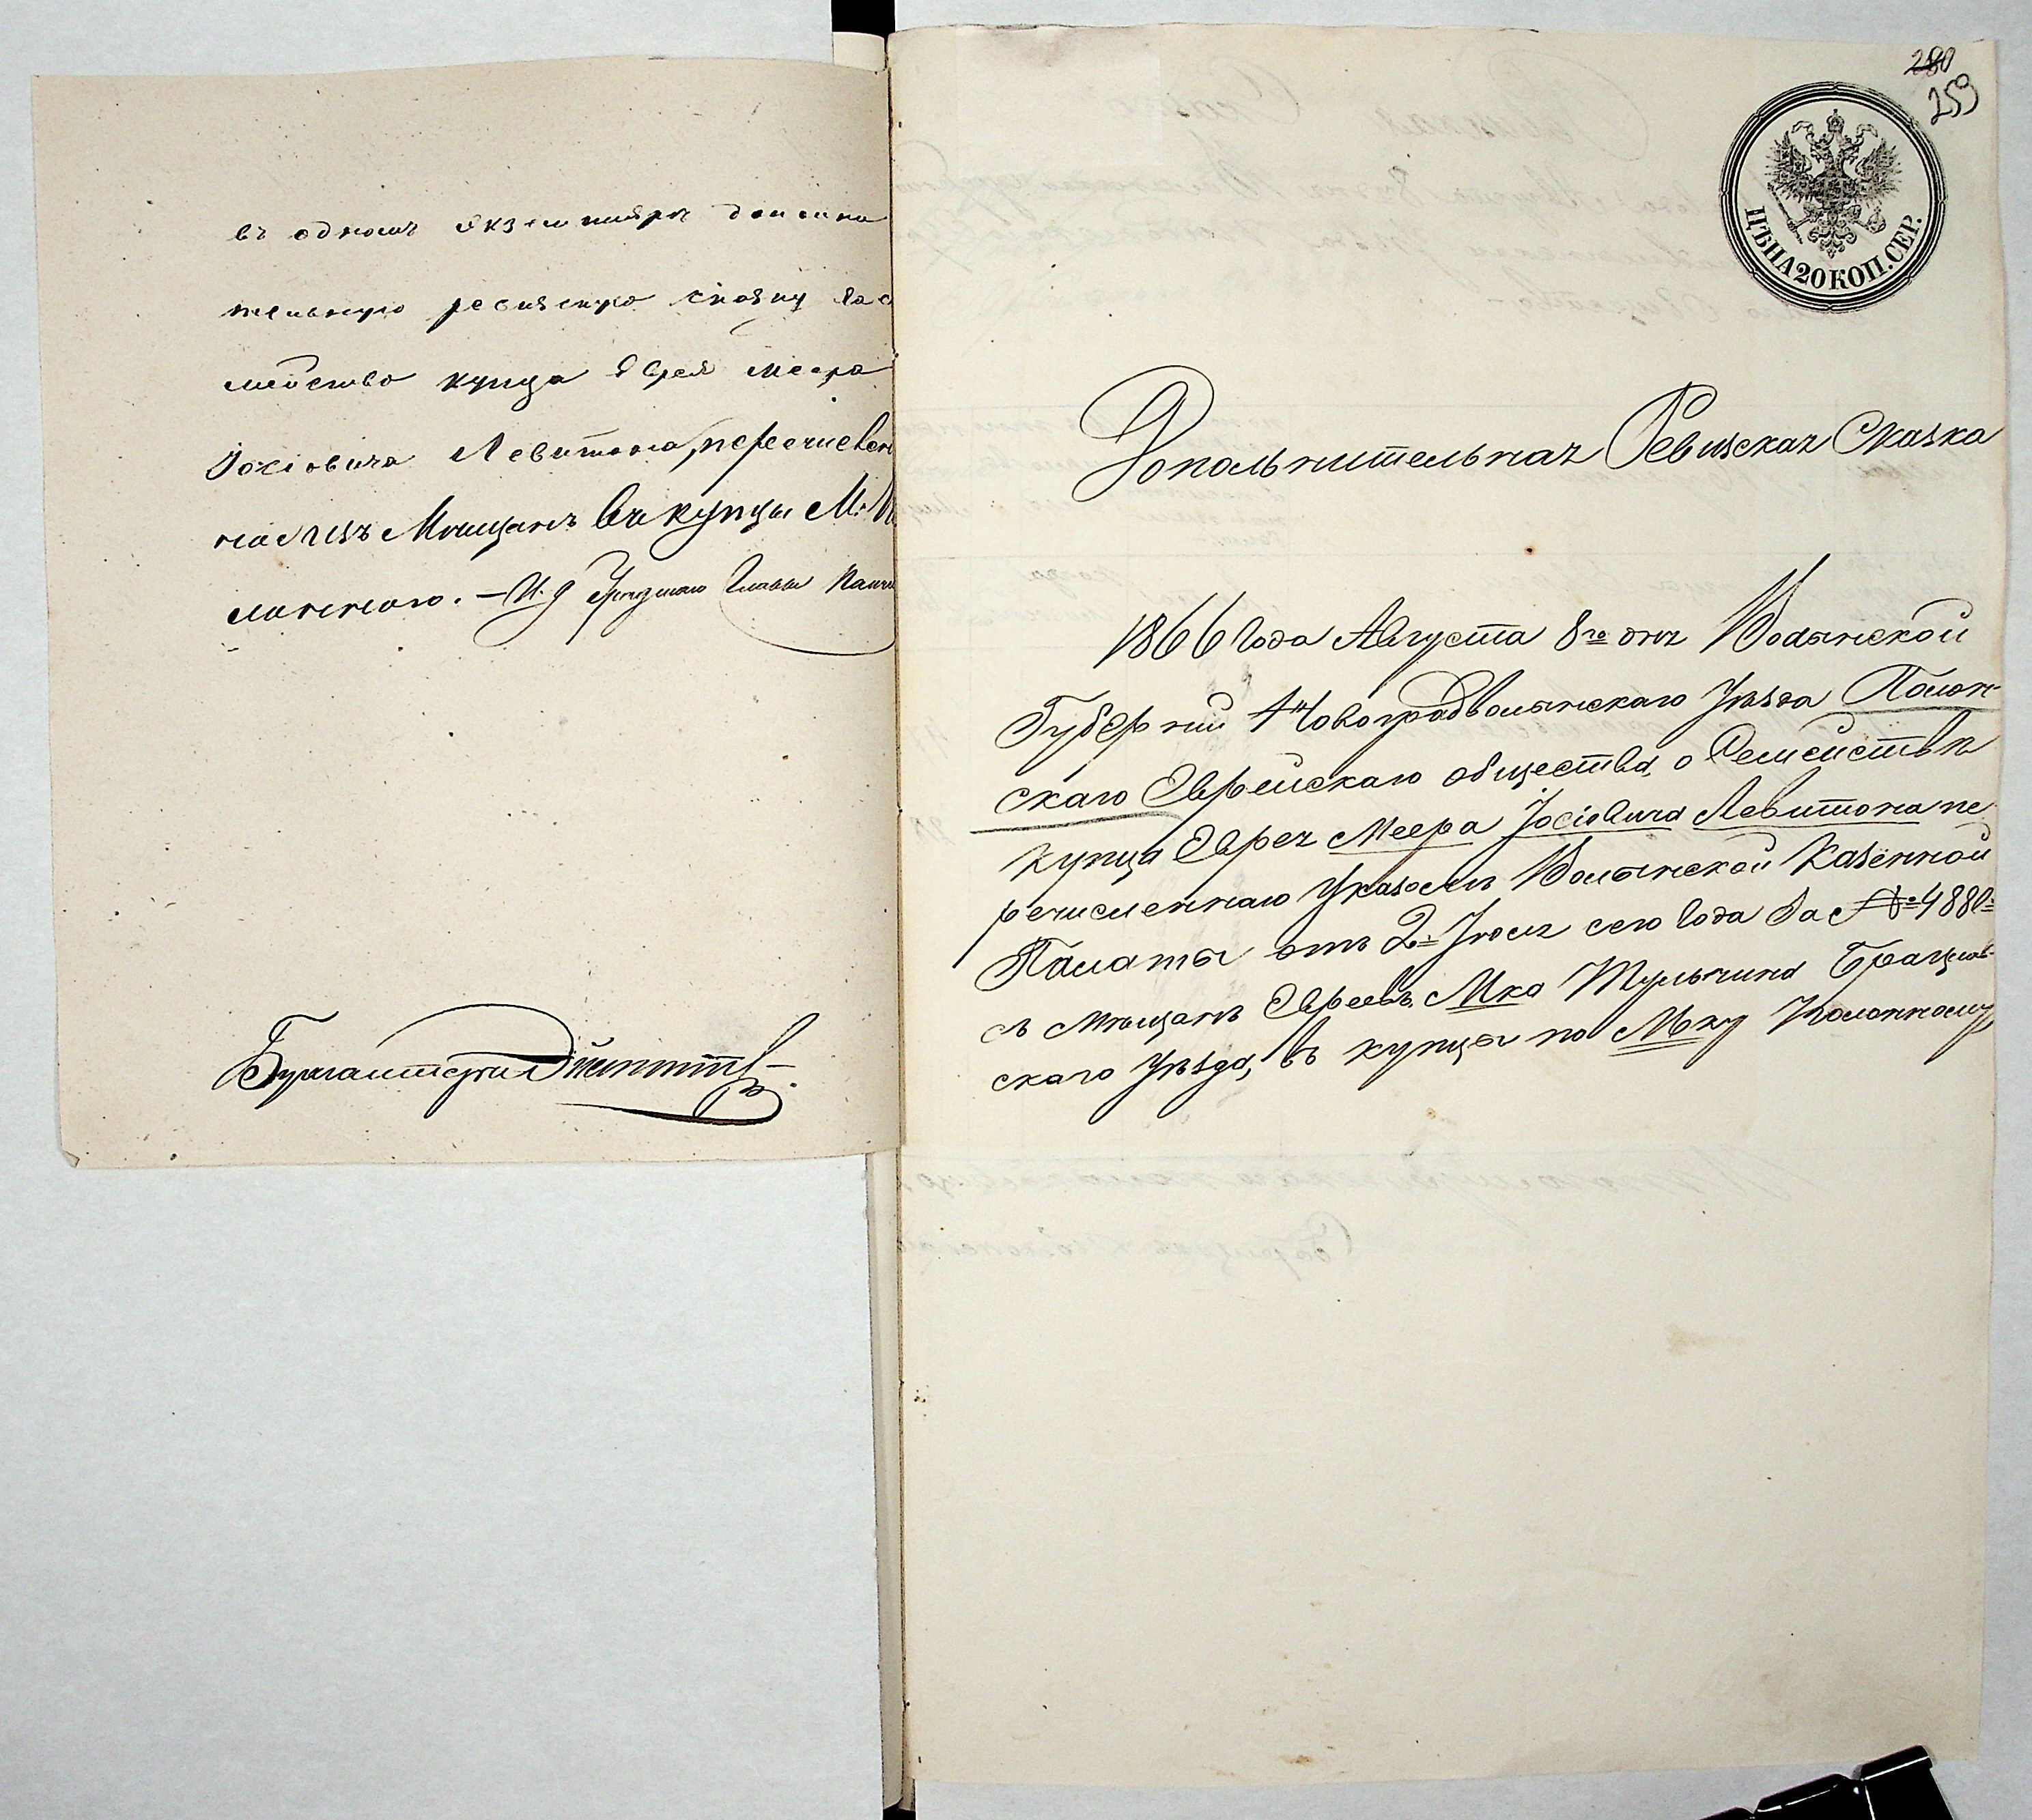 въ одномъ экземпляре дополни
тельную ревизскую сказку
мейство купца Еврея Меера
Іосіовича Левитона, перечислен
изъ Мѣщанъ въ купцы М.
лоннаго. — И. д Главы
Бургамистръ
280
259
ЦѢНА 20 КОП. СЕР.
Дополнительная Ревизская Сказка
1866 Года Августа 8го дня Волынской
Губерніи Новоградволынскаго Уѣзда Полон-
скаго Еврейскаго общества, о Семействѣ
купца Еврея Меера Іосіовича Левитона пе
речисленнаго Указомъ Волынской Казенной
Палаты отъ 2 Іюля сего Года За № 4880
съ мѣщанъ Евреевъ Мка Тульчина Брацлав-
скаго Уѣзда, въ купцы по Мку Полонному